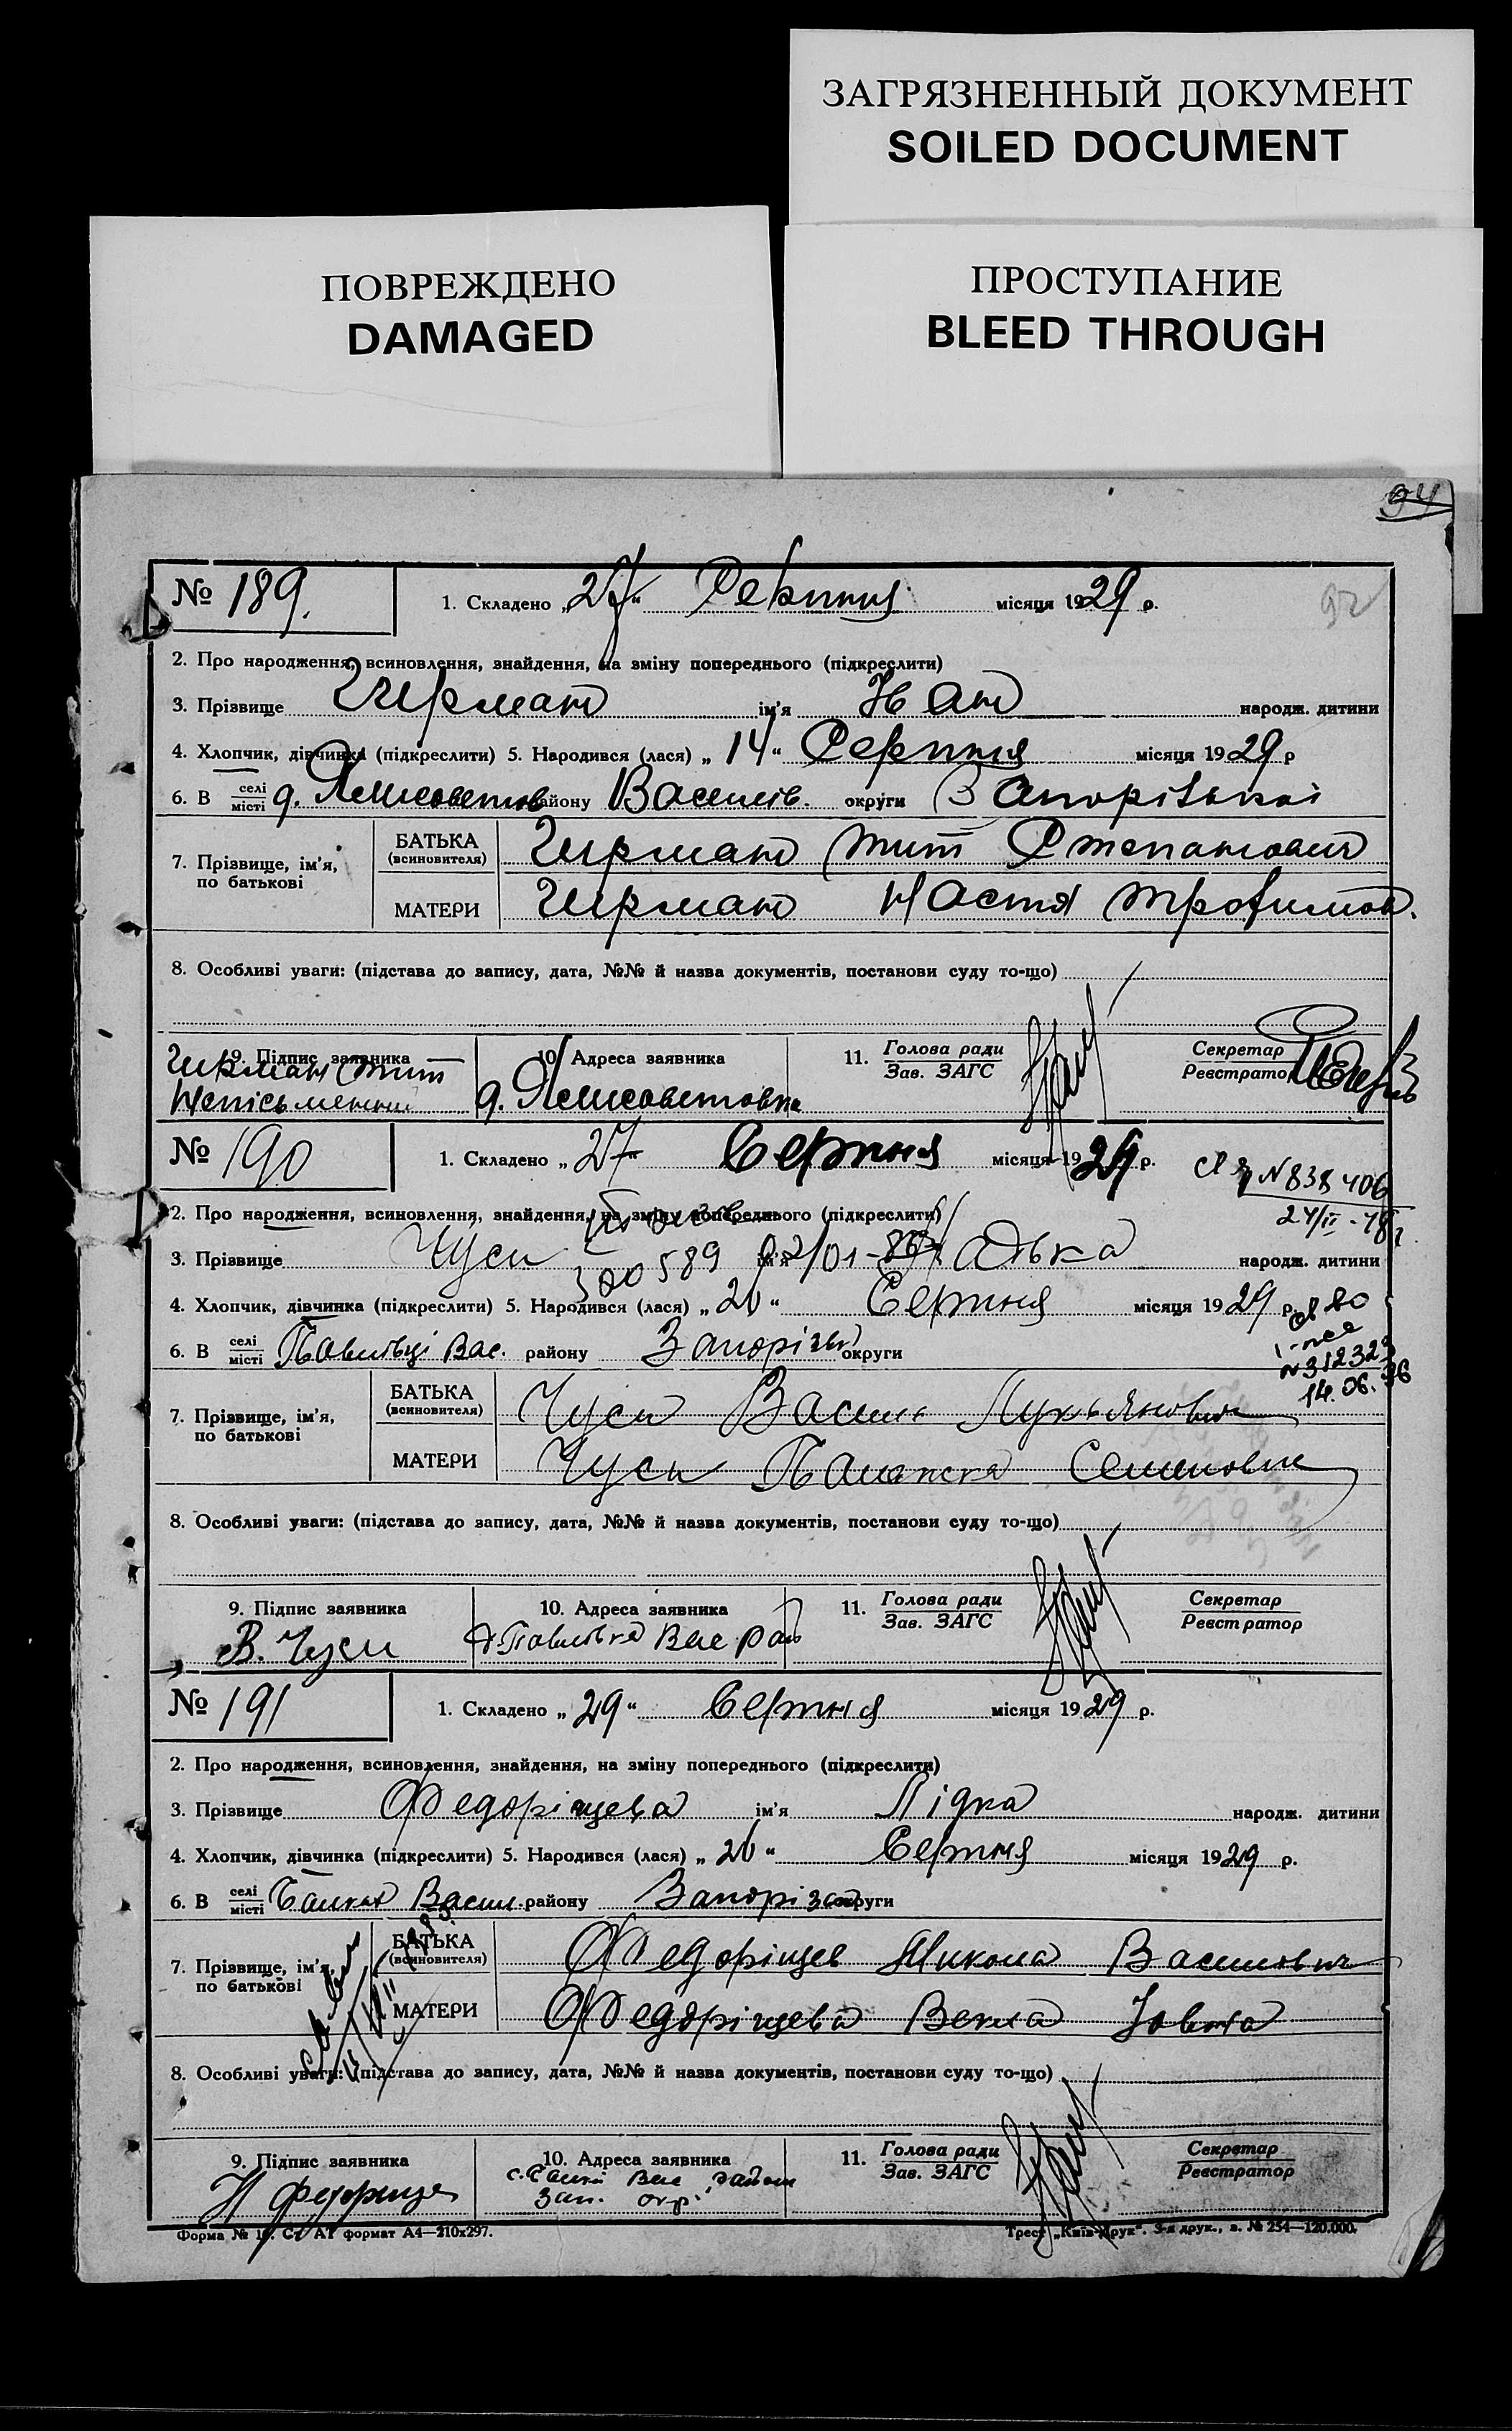 ЗАГРЯЗНЕННЫЙ ДОКУМЕНТ
SOILED DOCUMENT
ПОВРЕЖДЕНО
DAMAGED
ПРОСТУПАНИЕ
BLEED THROUGH
94
92
№ 189. 1. Складено „27“ Серпня місяця 1929 р.
2. Про народження, всиновлення, знайдення, на зміну попереднього (підкреслити)
3. Прізвище Чирман ім'я Іван народж. дитини
4. Хлопчик, дівчинка (підкреслити) 5. Народився (лася) „14“ Серпня місяця 1929 р
6. В селі/місті району Василів. округи Запорізької
7. Прізвище, ім'я, по батькові
БАТЬКА (всиновителя) Чирман Тит Степанович
МАТЕРИ Чирман Настя Трофимов.
8. Особливі уваги: (підстава до запису, дата, №№ й назва документів, постанови суду то-що)
9. Підпис заявника 10. Адреса заявника 11. Голова ради/Зав. ЗАГС Секретар/Реєстратор
Чирман Тит
Неписьменний
№ 190 1. Складено „27“ Серпня місяця 1929 р.
N 838406
24/II-48 г
2. Про народження, всиновлення, знайдення, на зміну попереднього (підкреслити)
3. Прізвище Чуси ім'я народж. дитини
589 02/01-86
4. Хлопчик, дівчинка (підкреслити) 5. Народився (лася) „20“ Серпня місяця 1929 р.
6. В селі/місті Павлівці Вас. району Запорізьк округи
N 312323
14.06.96
7. Прізвище, ім'я, по батькові
БАТЬКА (всиновителя) Чуси Василь Лукьянович
МАТЕРИ Чуси Палажка Семеновна
8. Особливі уваги: (підстава до запису, дата, №№ й назва документів, постанови суду то-що)
9. Підпис заявника 10. Адреса заявника 11. Голова ради/Зав. ЗАГС Секретар/Реєстратор
В. Чуси Павлівка Вас рай
№ 191 1. Складено „29“ Серпня місяця 1929 р.
2. Про народження, всиновлення, знайдення, на зміну попереднього (підкреслити)
3. Прізвище Федоріщева ім'я Лідка народж. дитини
4. Хлопчик, дівчинка (підкреслити) 5. Народився (лася) „20“ Серпня місяця 1929 р.
6. В селі/місті Балках Васил. району Запоріз округи
7. Прізвище, ім'я, по батькові
БАТЬКА (всиновителя) Федоріщев Микола Васильович
МАТЕРИ Федоріщева Векла Іовна
8. Особливі уваги: (підстава до запису, дата, №№ й назва документів, постанови суду то-що)
9. Підпис заявника 10. Адреса заявника 11. Голова ради/Зав. ЗАГС Секретар/Реєстратор
с. Балки Вас. район
Зап. окр.
Форма № 10. Ст. А1 формат А4—210х297. Трест „Київ-Друк“. 3-я друк., з. № 254—120.000.